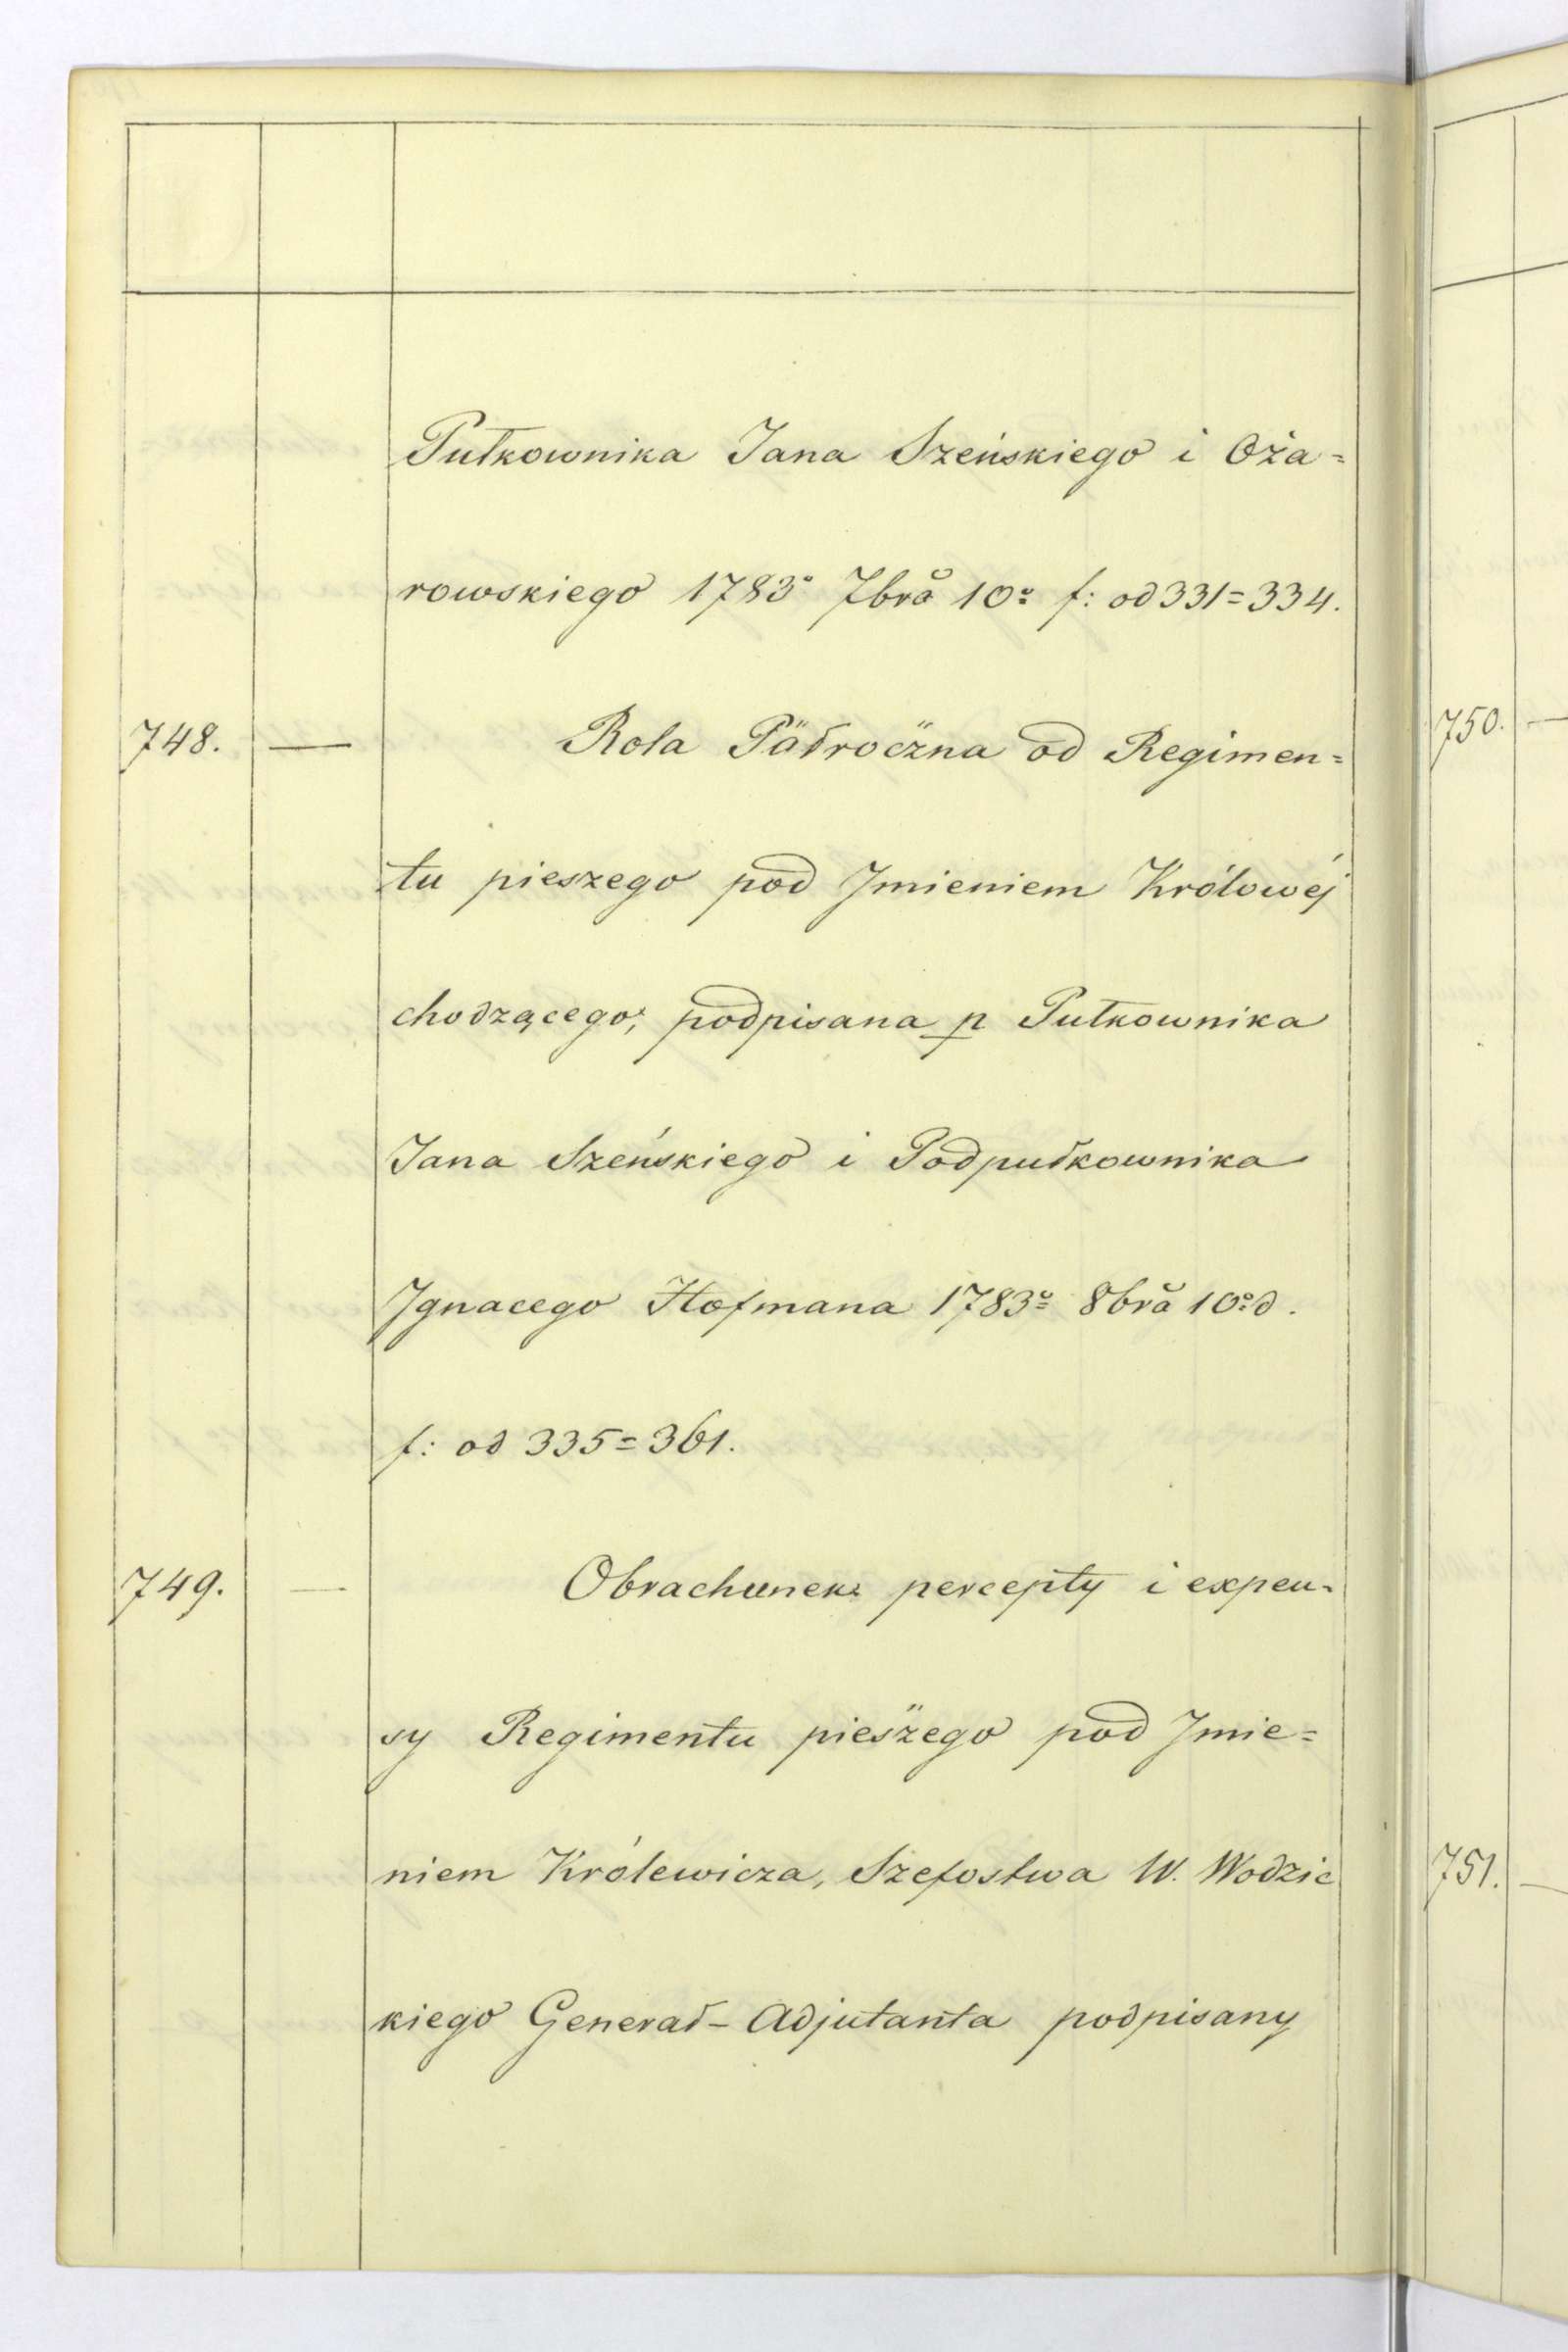 Pułkownika Jana Szeńskiego i Oża=
rowskiego 1783° 7brã 10° f: od 331=334.
748. — Rola Päłroc̈zna od Regimen=
tu pieszego pod Jmieniem Królowéj
chodzącego; podpisana p Pułkownika
Jana Szeńskiego i Podpułkownika
Jgnacego Hofmana 1783° 8brã 10° d.
f: od 335=361.
749. — Obrachunek percepty i expen-
sy Regimentu pies̈zego pod Jmie=
niem Królewicza, Szefostwa W. Wodzic
kiego Generał-Adjutanta podpisany
750. —
751. —